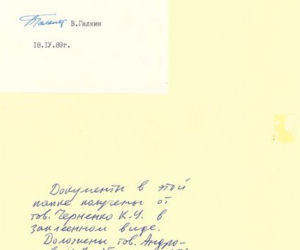 В.Галкин
18.IV.89г.
Документы в этой
папке получены от
тов. Черненко К.У. в
заклеенном виде.
Доложены тов. Андро-